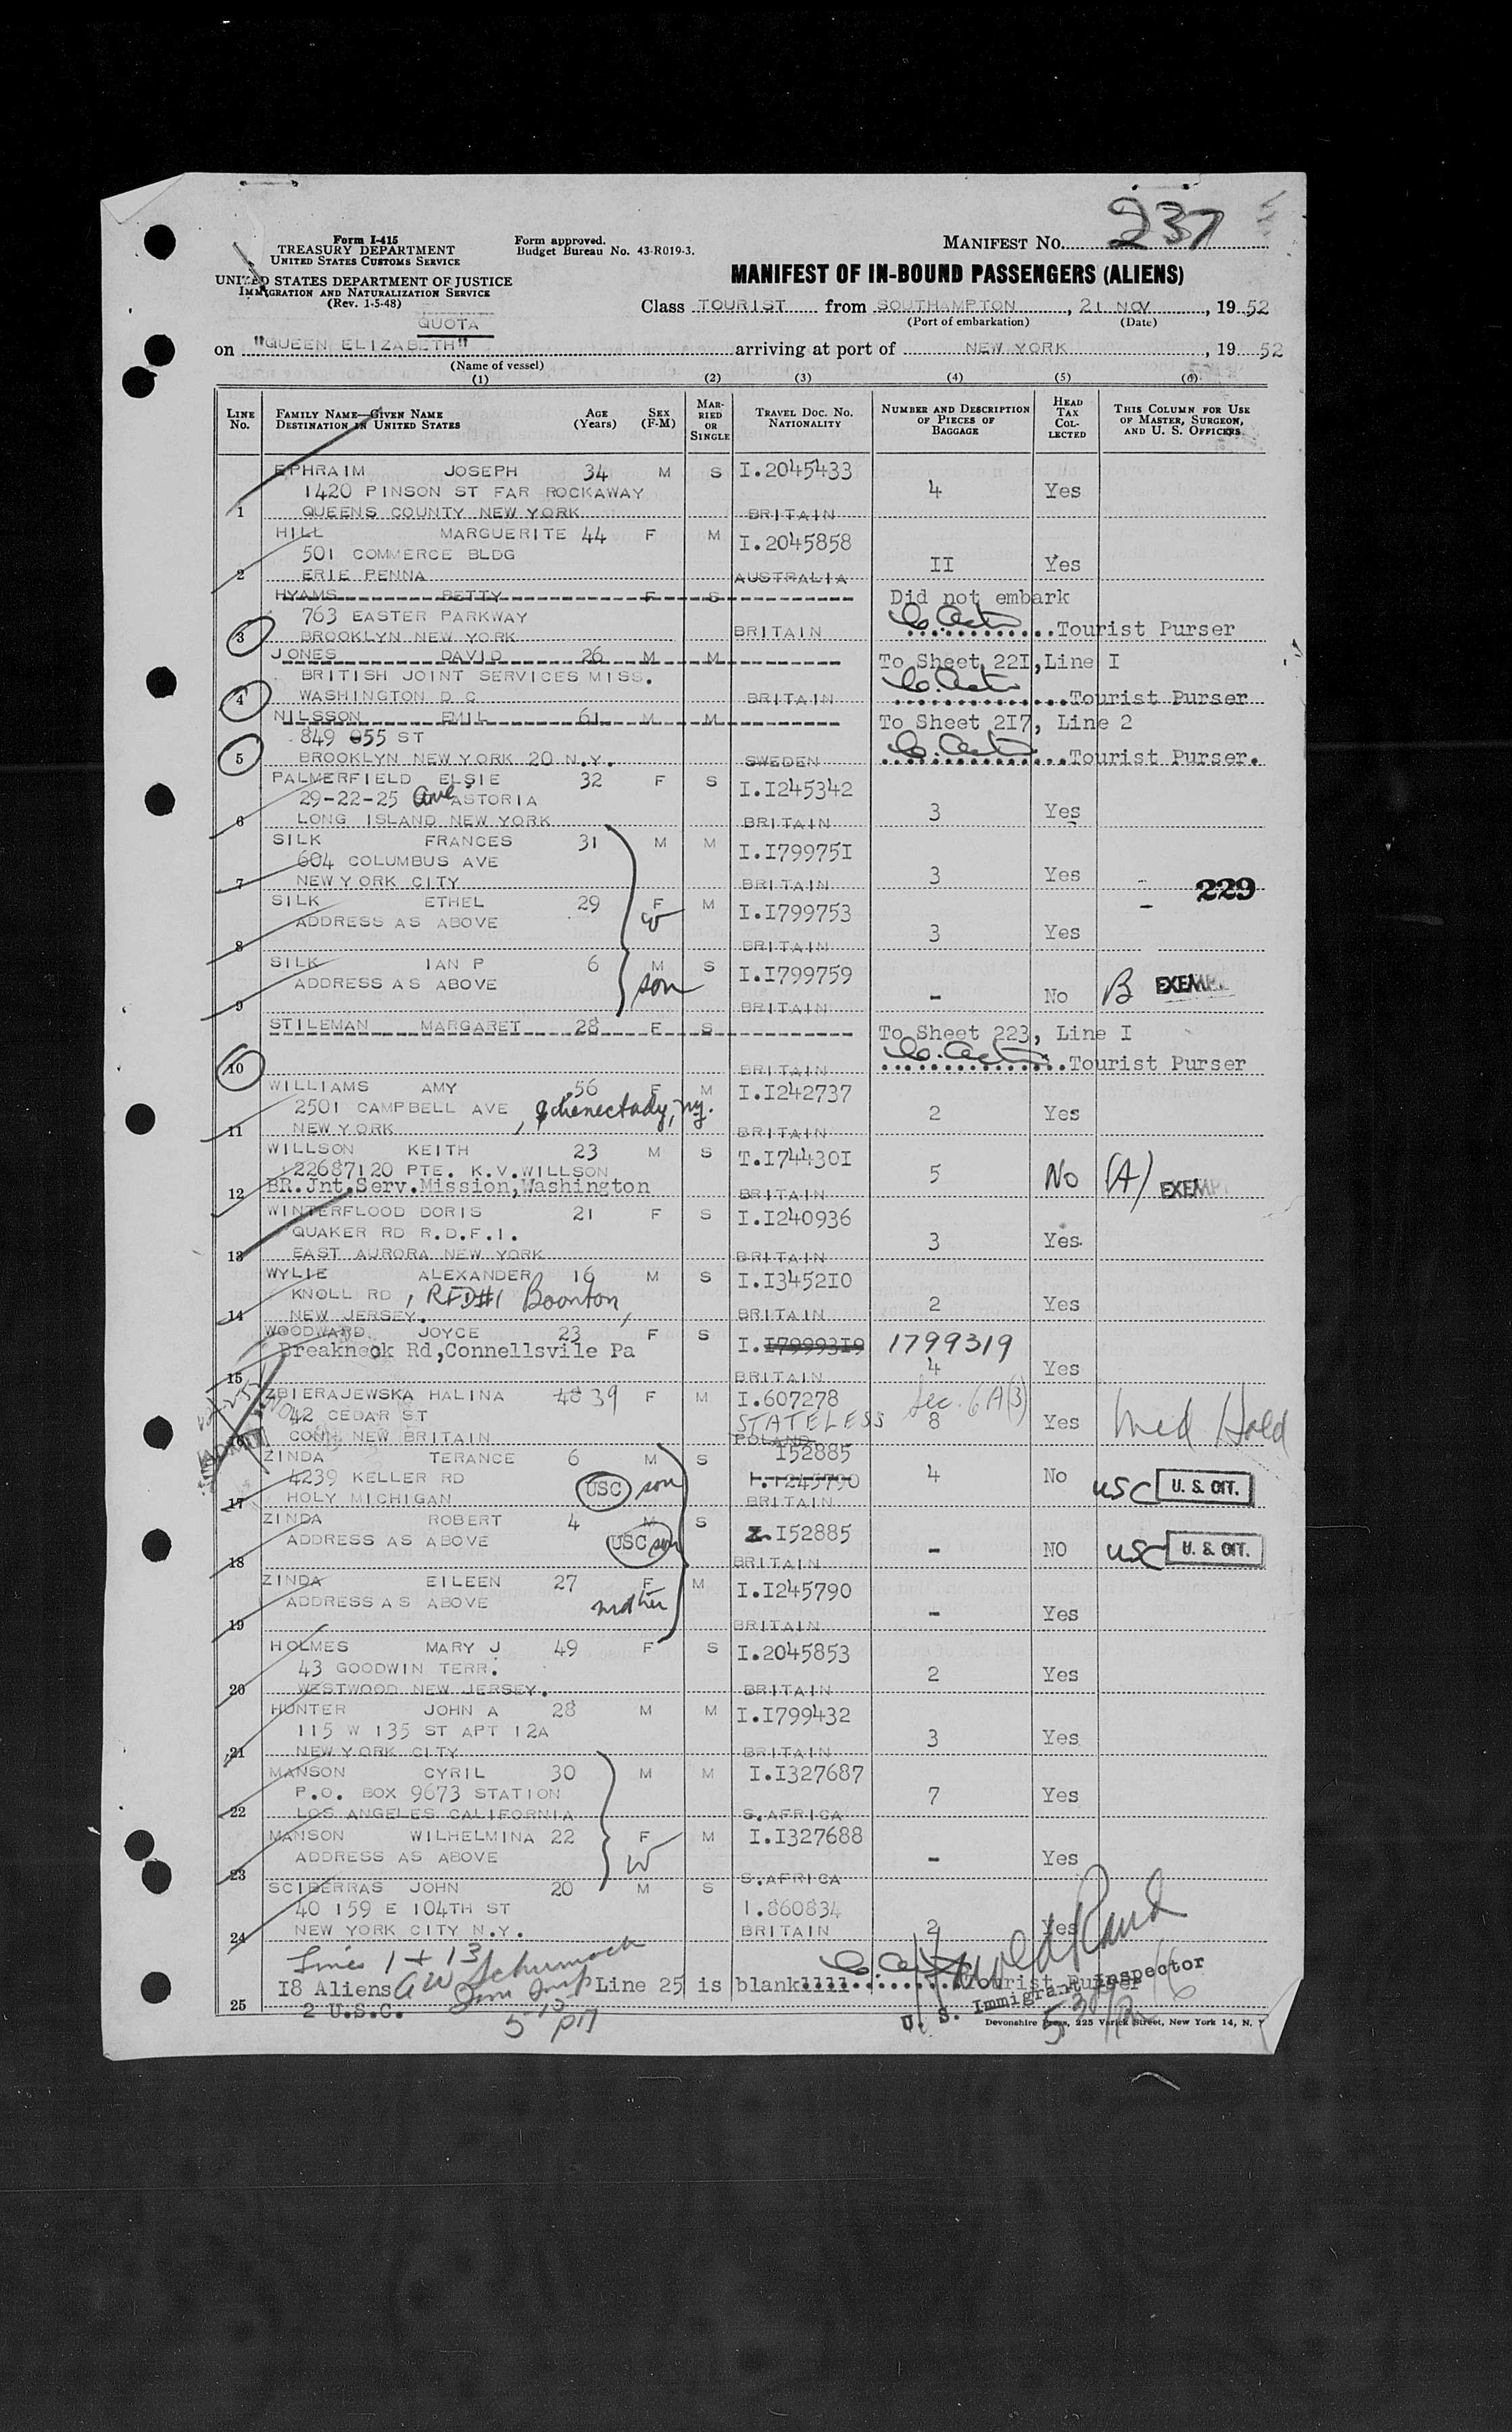 237
Form I-415
TREASURY DEPARTMENT
UNITED STATES CUSTOMS SERVICE
UNITED STATES DEPARTMENT OF JUSTICE
IMMIGRATION AND NATURALIZATION SERVICE
(Rev. 1-5-48)
Form approved.
Budget Bureau No. 43-R019-3.
MANIFEST NO.
MANIFEST OF IN-BOUND PASSENGERS (ALIENS)
Class TOURIST from SOUTHAMPTON, 21 NOV, 19 52
(Port of embarkation) (Date)
QUOTA
on "QUEEN ELIZABETH" arriving at port of NEW YORK, 19 52
(Name of vessel)
(1) (2) (3) (4) (5) (6)
LINE No. FAMILY NAME—GIVEN NAME DESTINATION IN UNITED STATES AGE (Years) SEX (F-M) MARRIED OR SINGLE TRAVEL DOC. NO. NATIONALITY NUMBER AND DESCRIPTION OF PIECES OF BAGGAGE HEAD TAX COLLECTED THIS COLUMN FOR USE OF MASTER, SURGEON, AND U. S. OFFICERS
EPHRAIM JOSEPH 34 M S I.2045433
1420 PINSON ST FAR ROCKAWAY 4 Yes
1 QUEENS COUNTY NEW YORK BRITAIN
HILL MARGUERITE 44 F M I.2045858
501 COMMERCE BLDG II Yes
2 ERIE PENNA AUSTRALIA
HYAMS BETTY F S Did not embark
763 EASTER PARKWAY
3 BROOKLYN NEW YORK BRITAIN Tourist Purser
JONES DAVID 26 M M To Sheet 22I, Line I
BRITISH JOINT SERVICES MISS.
4 WASHINGTON D C BRITAIN Tourist Purser
NILSSON EMIL 61 M M To Sheet 2I7, Line 2
849 055 ST
5 BROOKLYN NEW YORK 20 N.Y. SWEDEN Tourist Purser.
PALMERFIELD ELSIE 32 F S I.I245342
29-22-25 Ave ASTORIA 3 Yes
6 LONG ISLAND NEW YORK BRITAIN
SILK FRANCES 31 M M I.I79975I
604 COLUMBUS AVE 3 Yes
7 NEW YORK CITY BRITAIN 229
SILK ETHEL 29 F M I.I799753
ADDRESS AS ABOVE W 3 Yes
8 BRITAIN
SILK IAN P 6 M S I.I799759
ADDRESS AS ABOVE son - No B EXEMPT
9 BRITAIN
STILEMAN MARGARET 28 F S To Sheet 223, Line I
10 BRITAIN Tourist Purser
WILLIAMS AMY 56 F M I.I242737
2501 CAMPBELL AVE, Schenectady, ny. 2 Yes
11 NEW YORK BRITAIN
WILLSON KEITH 23 M S T.I74430I
22687120 PTE. K.V.WILLSON 5 No (A) EXEMPT
12 BR.Jnt.Serv.Mission,Washington BRITAIN
WINTERFLOOD DORIS 21 F S I.I240936
QUAKER RD R.D.F.I. 3 Yes
13 EAST AURORA NEW YORK BRITAIN
WYLIE ALEXANDER 16 M S I.I3452I0
KNOLL RD, RFD#1 Boonton, 2 Yes
14 NEW JERSEY. BRITAIN
WOODWARD JOYCE 23 F S I.I7999319 1799319
Breakneck Rd,Connellsvile Pa 4 Yes
15 BRITAIN
ZBIERAJEWSKA HALINA 48 39 F M I.607278 Sec. 6A(3)
42 CEDAR ST STATELESS 8 Yes Med. Hold
16 CONN NEW BRITAIN POLAND
ZINDA TERANCE 6 M S I52885
4239 KELLER RD USC son I.I245790 4 No USC U. S. CIT.
17 HOLY MICHIGAN BRITAIN
ZINDA ROBERT 4 M S I.I52885
ADDRESS AS ABOVE USC son - NO USC U. S. CIT.
18 BRITAIN
ZINDA EILEEN 27 F M I.I245790
ADDRESS AS ABOVE mother - Yes
19 BRITAIN
HOLMES MARY J 49 F S I.2045853
43 GOODWIN TERR. 2 Yes
20 WESTWOOD NEW JERSEY. BRITAIN
HUNTER JOHN A 28 M M I.I799432
115 W 135 ST APT 12A 3 Yes
21 NEW YORK CITY BRITAIN
MANSON CYRIL 30 M M I.I327687
P.O. BOX 9673 STATION 7 Yes
22 LOS ANGELES CALIFORNIA S.AFRICA
MANSON WILHELMINA 22 F M I.I327688
ADDRESS AS ABOVE W - Yes
23 S.AFRICA
SCIBERRAS JOHN 20 M S
40 159 E 104TH ST I.860834
24 NEW YORK CITY N.Y. BRITAIN 2 Yes
Lines 1 + 13
I8 Aliens AW Schumach Line 25 is blank Tourist Purser
25 2 U.S.C. Imm Insp
5 15 PM
U. S. Immigrant Inspector
Devonshire Press, 225 Varick Street, New York 14, N. Y.